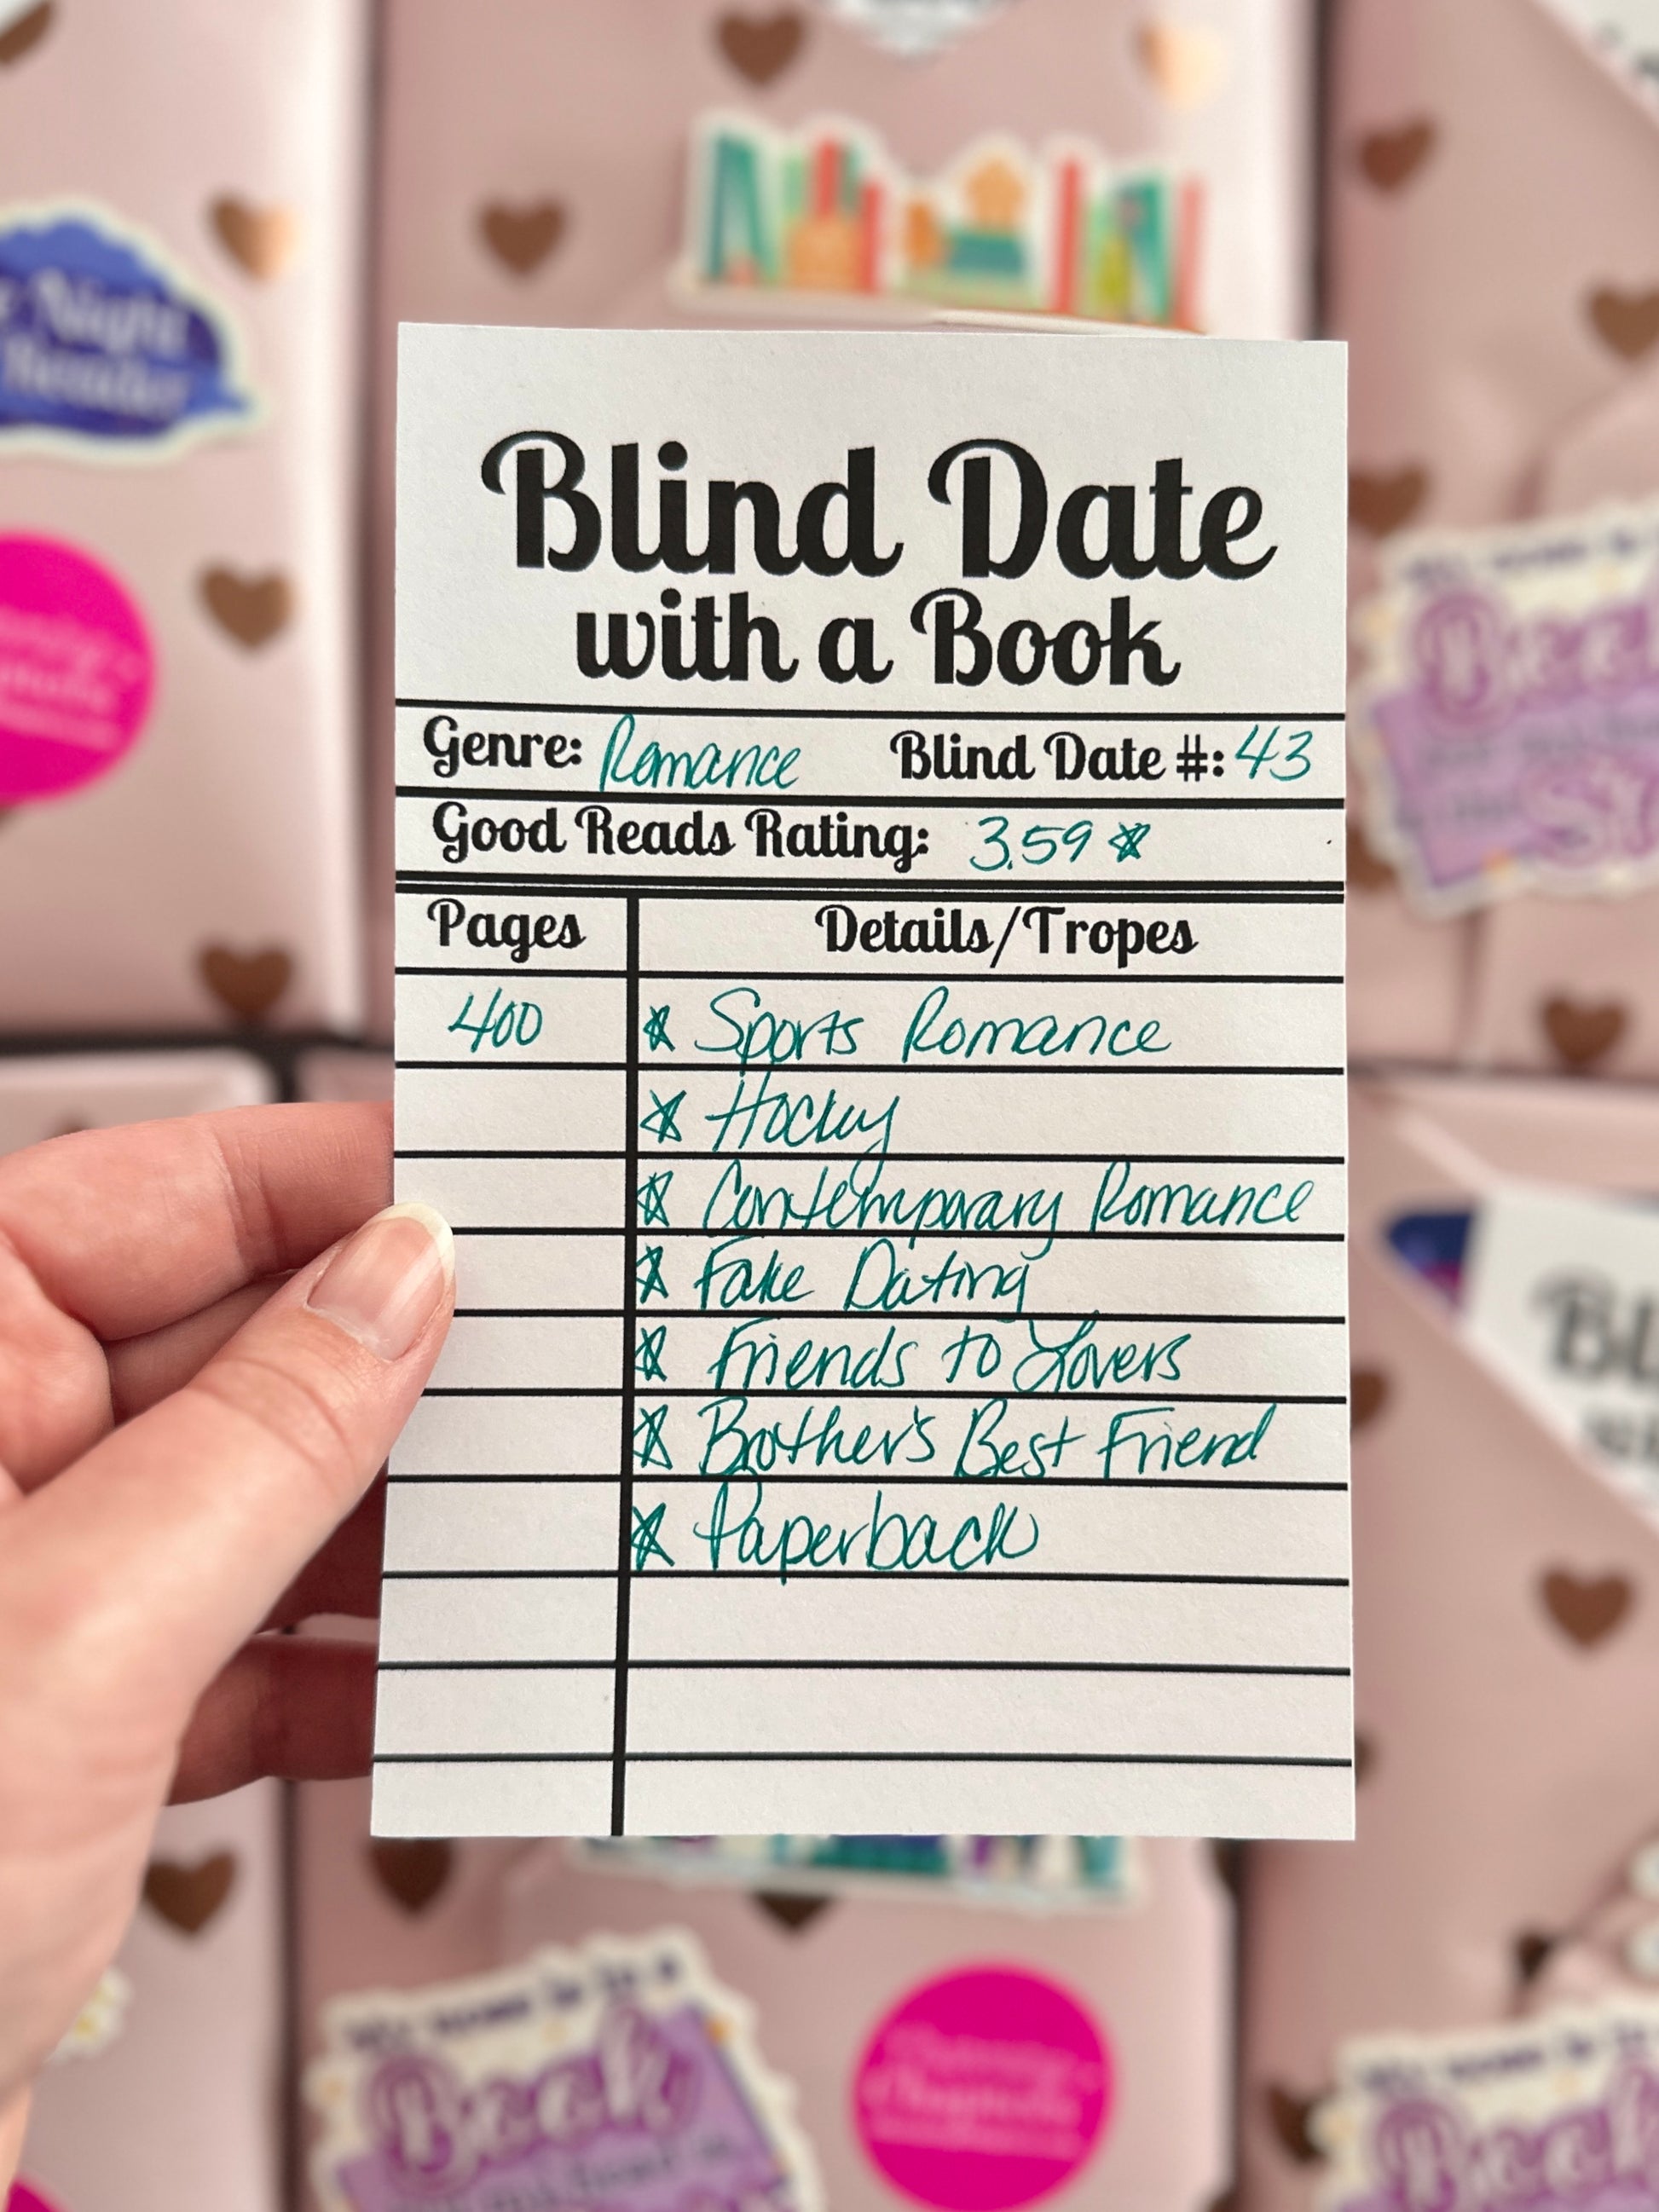 Night
Reader
Blind Date
with a Book
Genre: Romance Blind Date #: 43
Good Reads Rating: 3.59 ☆
Pages Details/Tropes
400 ☆ Sports Romance
☆ Hockey
☆ Contemporary Romance
☆ Fake Dating
☆ Friends to Lovers
☆ Brother's Best Friend
☆ Paperback
Book
Book